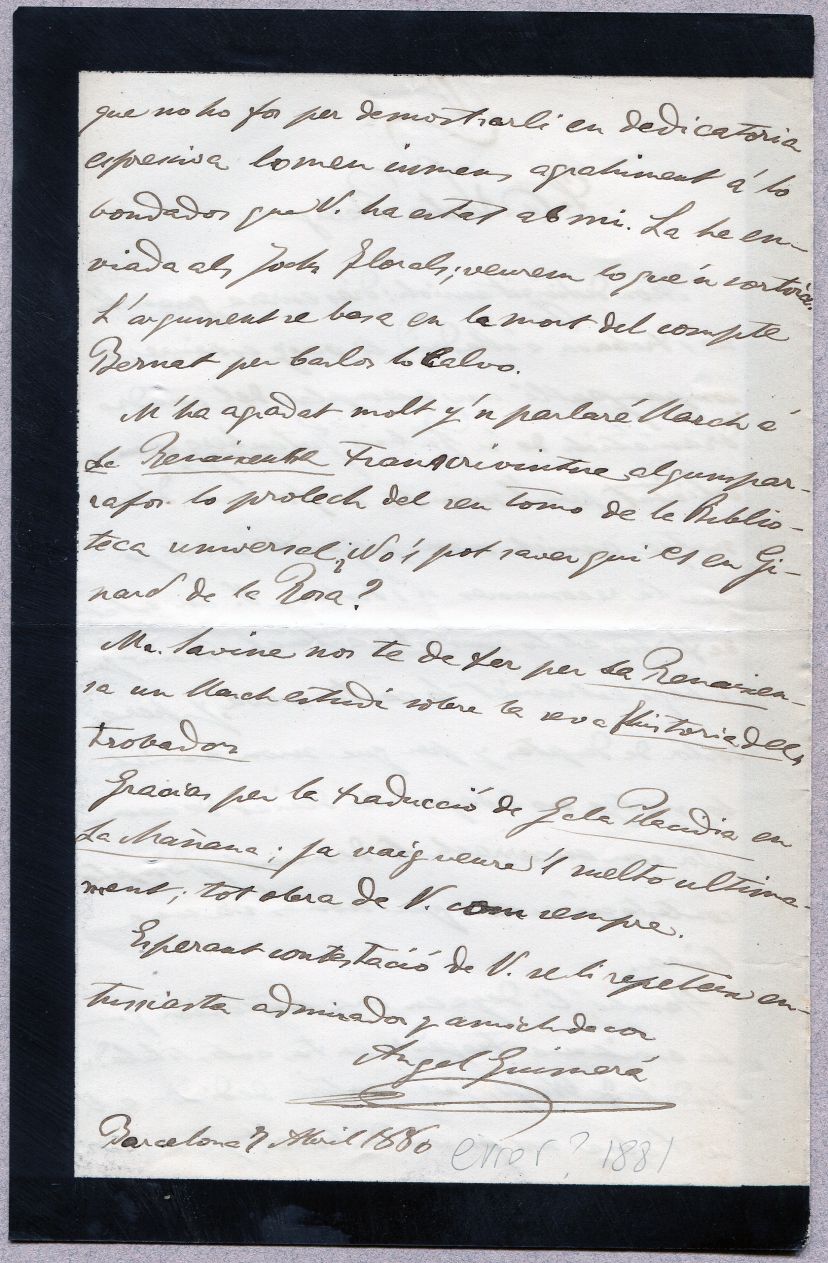 que no ho fos per demostrarli en dedicatoria
espresiva lo meu inmens agrahiment á lo
bondadós que V. ha estat ab mi. La he en-
viada als Jochs Florals; veurem lo que 'n sortirá.
L'argument se basa en la mort del compte
Bernat per Carlos lo Calvo.
M'ha agradat molt y 'n parlaré llarch á
La Renaixensa transcrivintne alguns par-
rafos lo prolech del seu tomo de la Biblio-
teca universal; No's pot saver qui es en Gi-
nard de la Rosa?
Mr. Savine nos te de fer per La Renaixen-
sa un llarch estudi sobre la seva Historia dels
trobadors
Gracias per la traducció de Gala Placidia en
La Mañana; ja vaig veure 'l suelto ultima-
ment; tot obra de V. com sempre.
Esperant contestació de V. se li repeteix en-
tussiasta admirador y amich de cor
Angel Guimerá
Barcelona 7 Abril 1880 error? 1881